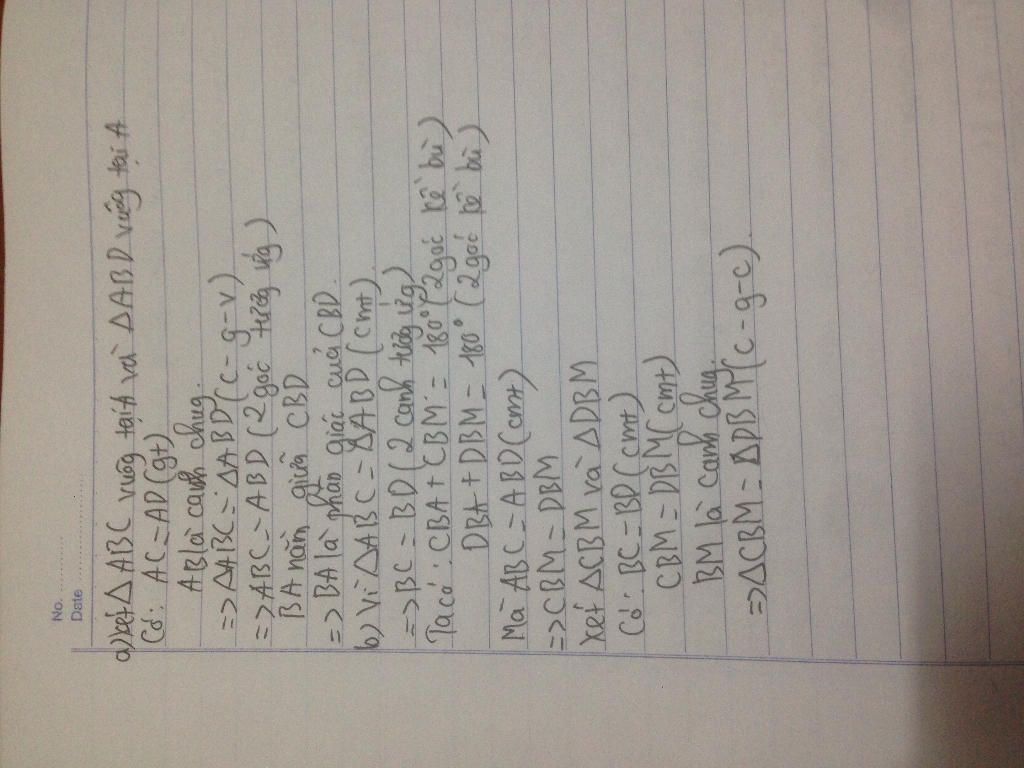 No. ...............
Date .....................
a) Xét ΔABC vuông tại A và ΔABD vuông tại A
Có: AC = AD (gt)
AB là cạnh chung.
=> ΔABC = ΔABD (c - g - v)
=> ABC = ABD (2 góc tương ứng)
BA nằm giữa CBD
=> BA là phân giác của CBD.
b) Vì ΔABC = ΔABD (cmt)
=> BC = BD (2 cạnh tương ứng)
Ta có: CBA + CBM = 180° (2 góc kề bù)
DBA + DBM = 180° (2 góc kề bù)
Mà ABC = ABD (cmt)
=> CBM = DBM
Xét ΔCBM và ΔDBM
Có: BC = BD (cmt)
CBM = DBM (cmt)
BM là cạnh chung.
=> ΔCBM = ΔDBM (c - g - c).